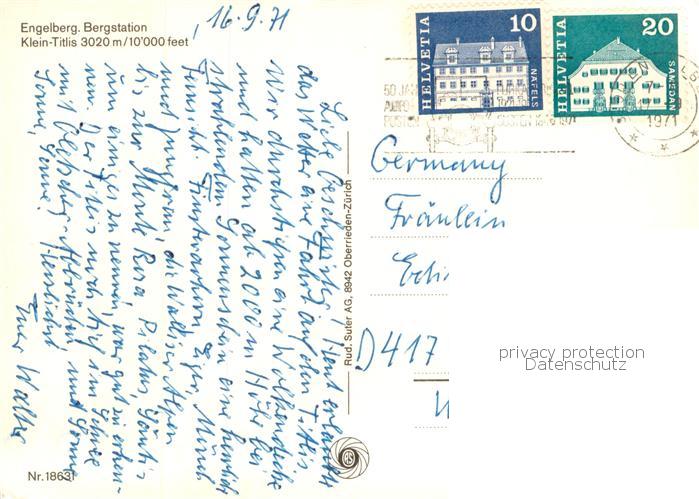 Engelberg. Bergstation
Klein-Titlis 3020 m/10'000 feet
16.9.71
HELVETIA
10
NÄFELS
HELVETIA
20
SAMEDAN
50 JAHRE
1971
Liebe Geschwister! Heut erlaubte
das Wetter eine Fahrt auf den Titlis
Wir durchstiegen eine Wolkendecke
und hatten ab 2000 m Höhe bei
strahlendem Sonnenschein eine herrliche
Fernsicht. Finsteraarhorn, Eiger, Mönch
und Jungfrau, die Walliser Alpen
bis zur Monte Rosa, Pilatus, Säntis
um einige zu nennen, war gut zu erken-
nen. Der Titlis noch tief im Schnee
mit Gletscher-Abbrüchen, und Sonne
Sonne, Sonne! Herzlichst
Euer Walter
Rud. Suter AG, 8942 Oberrieden-Zürich
Germany
Fräulein
D 417
privacy protection
Datenschutz
Nr. 18631